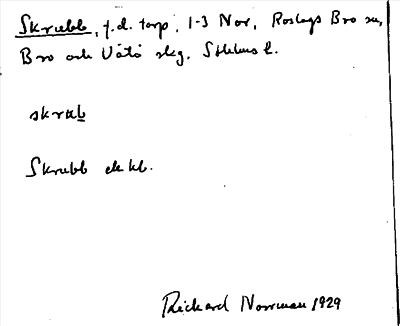 Skrubb, f.d. torp, 1-3 Nor, Roslags Bro sn,
Bro och Vätö skg. Sthlms l.
skrub
Skrubb ekbl.
Rickard Norrman 1929